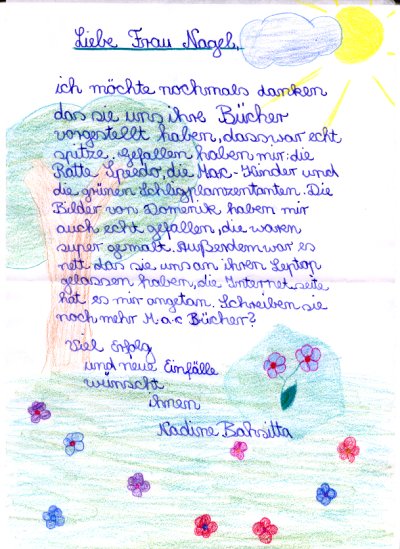 Liebe Frau Nagel,
ich möchte nochmals danken
das sie uns ihre Bücher
vorgestellt haben, dass war echt
spitze. Gefallen haben mir: die
Ratte Speedo, die Mac-Kinder und
die grünen Schligplanzentanten. Die
Bilder von Domenik haben mir
auch echt gefallen, die waren
super gemalt. Außerdem war es
nett das sie uns an ihren Leptop
gelassen haben, die Internetseite
hat es mir angetan. Schreiben sie
noch mehr M.a.c Bücher?
Viel Erfolg
und neue Einfälle
wünscht
ihnen
Nadine Bahsitta